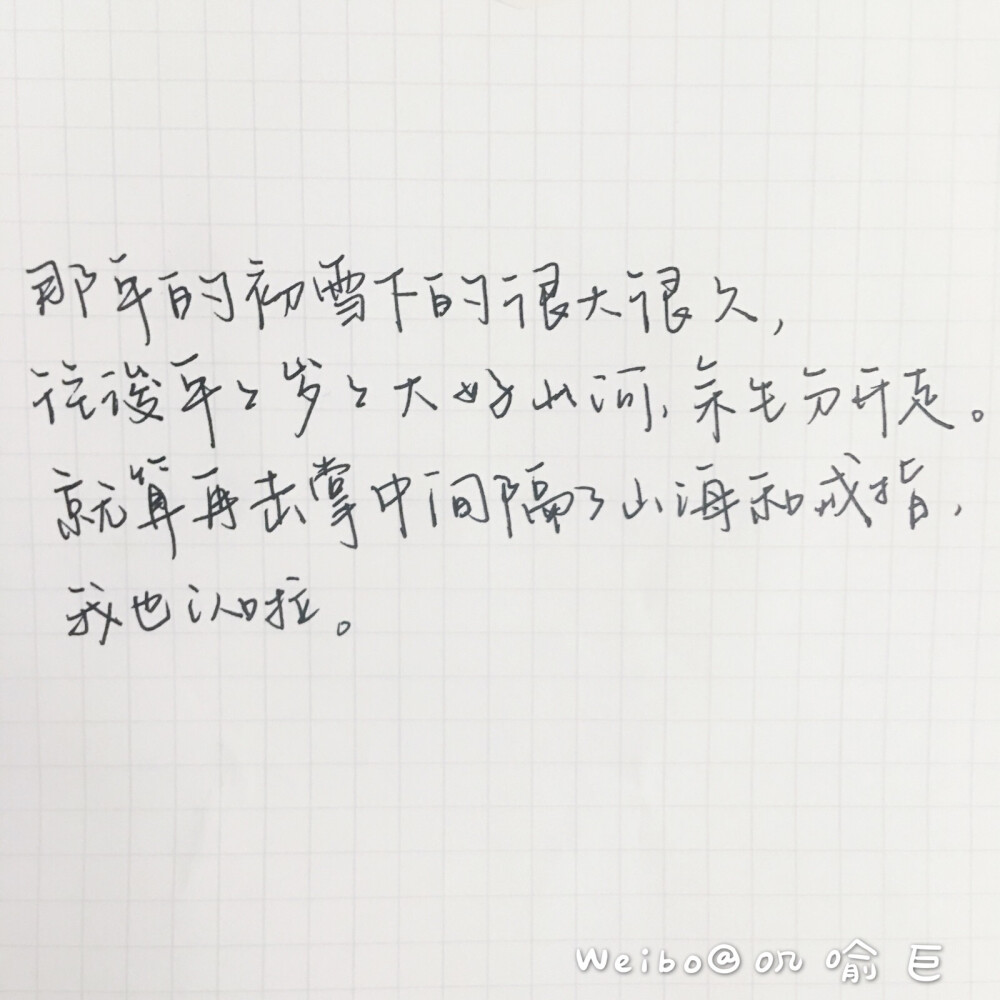 那年的初雪下的很大很久，
往後年々岁々大好山河，余生分开走。
就算再击掌中间隔了山海和戒指，
我也认啦。
Weibo@吹喻巨